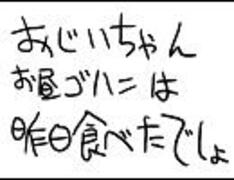 おじいちゃん
お昼ゴハンは
昨日食べたでしょ